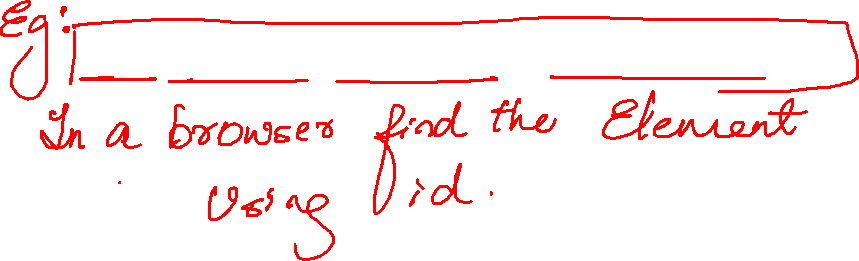 Eg:
In a browser find the Element
using id.